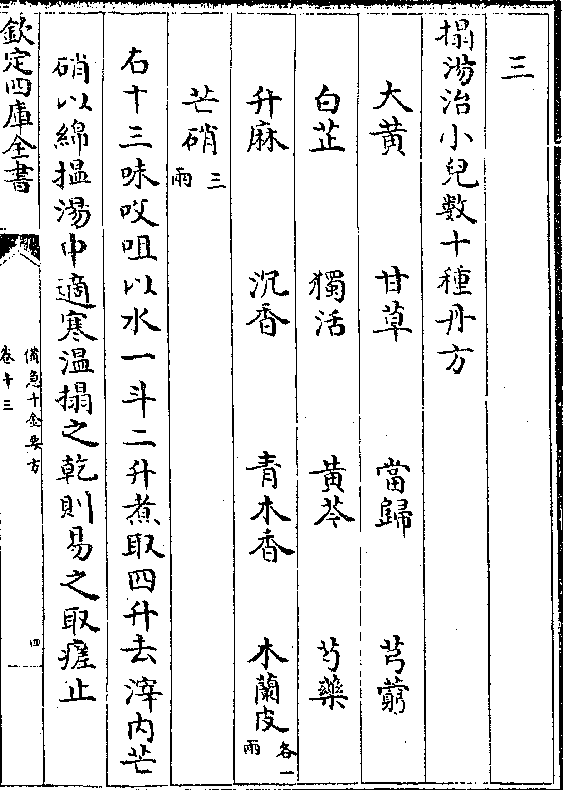 三
搨湯治小兒數十種丹方
大黄 甘草 當歸 芎藭
白芷 獨活 黄芩 芍藥
升麻 沉香 青木香 木蘭皮各一兩
芒硝三兩
右十三味㕮咀以水一斗二升煮取四升去滓内芒
硝以綿揾湯中適寒温搨之乾則易之取瘥止
欽定四庫全書
備急千金要方
卷十三
四